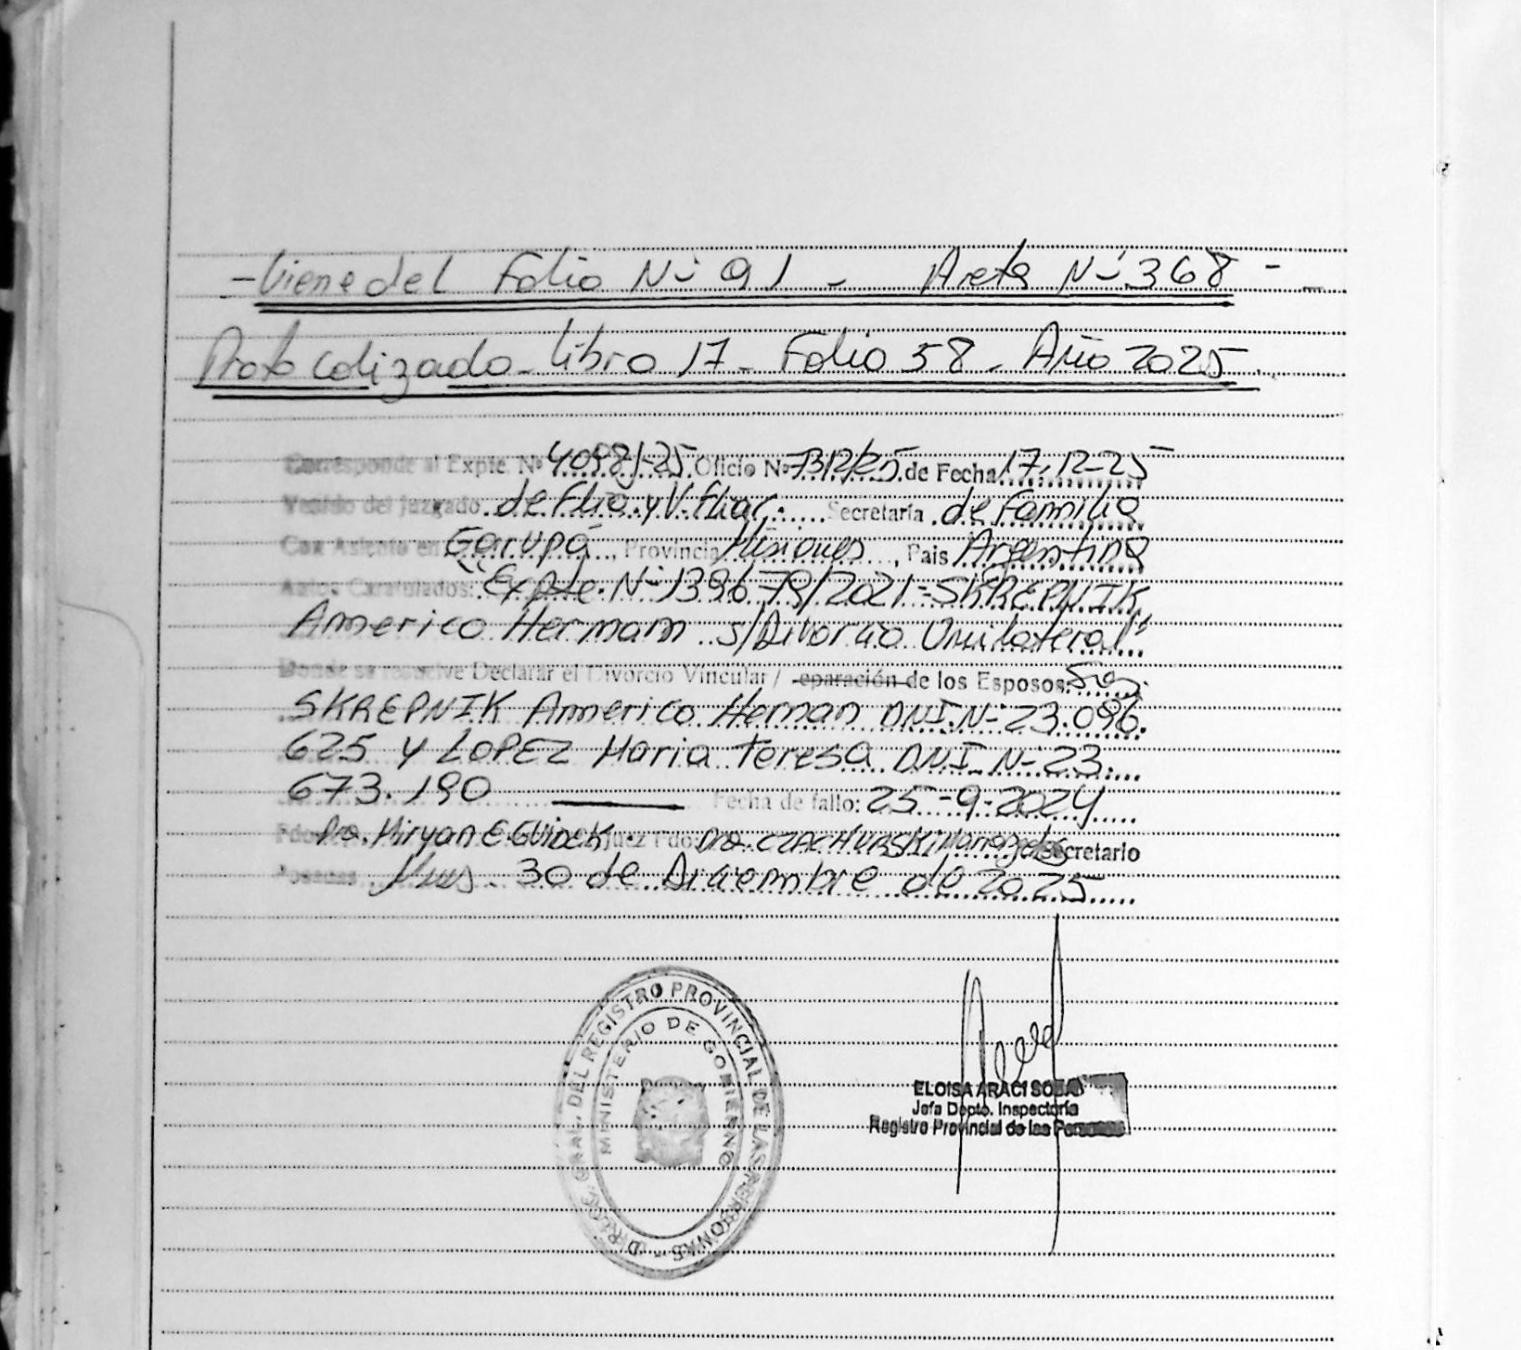 - Viene del Folio Nº 91 - Acta Nº 368 -
Protocolizado - libro 17 - Folio 58 - Año 2025
Corresponde al Expte. Nº 4098/-25 Oficio Nº 7312/25 de Fecha 17-12-25
Venido del juzgado de Flia. y V. fliar. Secretaría de Familia
Con Asiento en Garupá, Provincia Misiones, Pais Argentina
Autos Caratulados: "Expte. Nº 139679/2021-SKREPNIK
Americo Hermann s/Divorcio Unilateral"
Donde se resuelve Declarar el Divorcio Vincular / eparación de los Esposos:
SKREPNIK Americo Hernan DNI. Nº 23.096.
625 y LOPEZ Maria Teresa DNI. Nº 23.
673.190 Fecha de fallo: 25-9-2024
Fdo: Dra. Miryan E. Juez Fdo: Dra. CZACHURSKI Mariangela Secretario
Posadas Mnes. 30 de Diciembre de 2025
DIREC. GRAL. DEL REGISTRO PROVINCIAL DE LAS PERSONAS -
MINISTERIO DE GOBIERNO
ELOISA ARACI SOSA
Jefa Depto. Inspectoría
Registro Provincial de las Personas